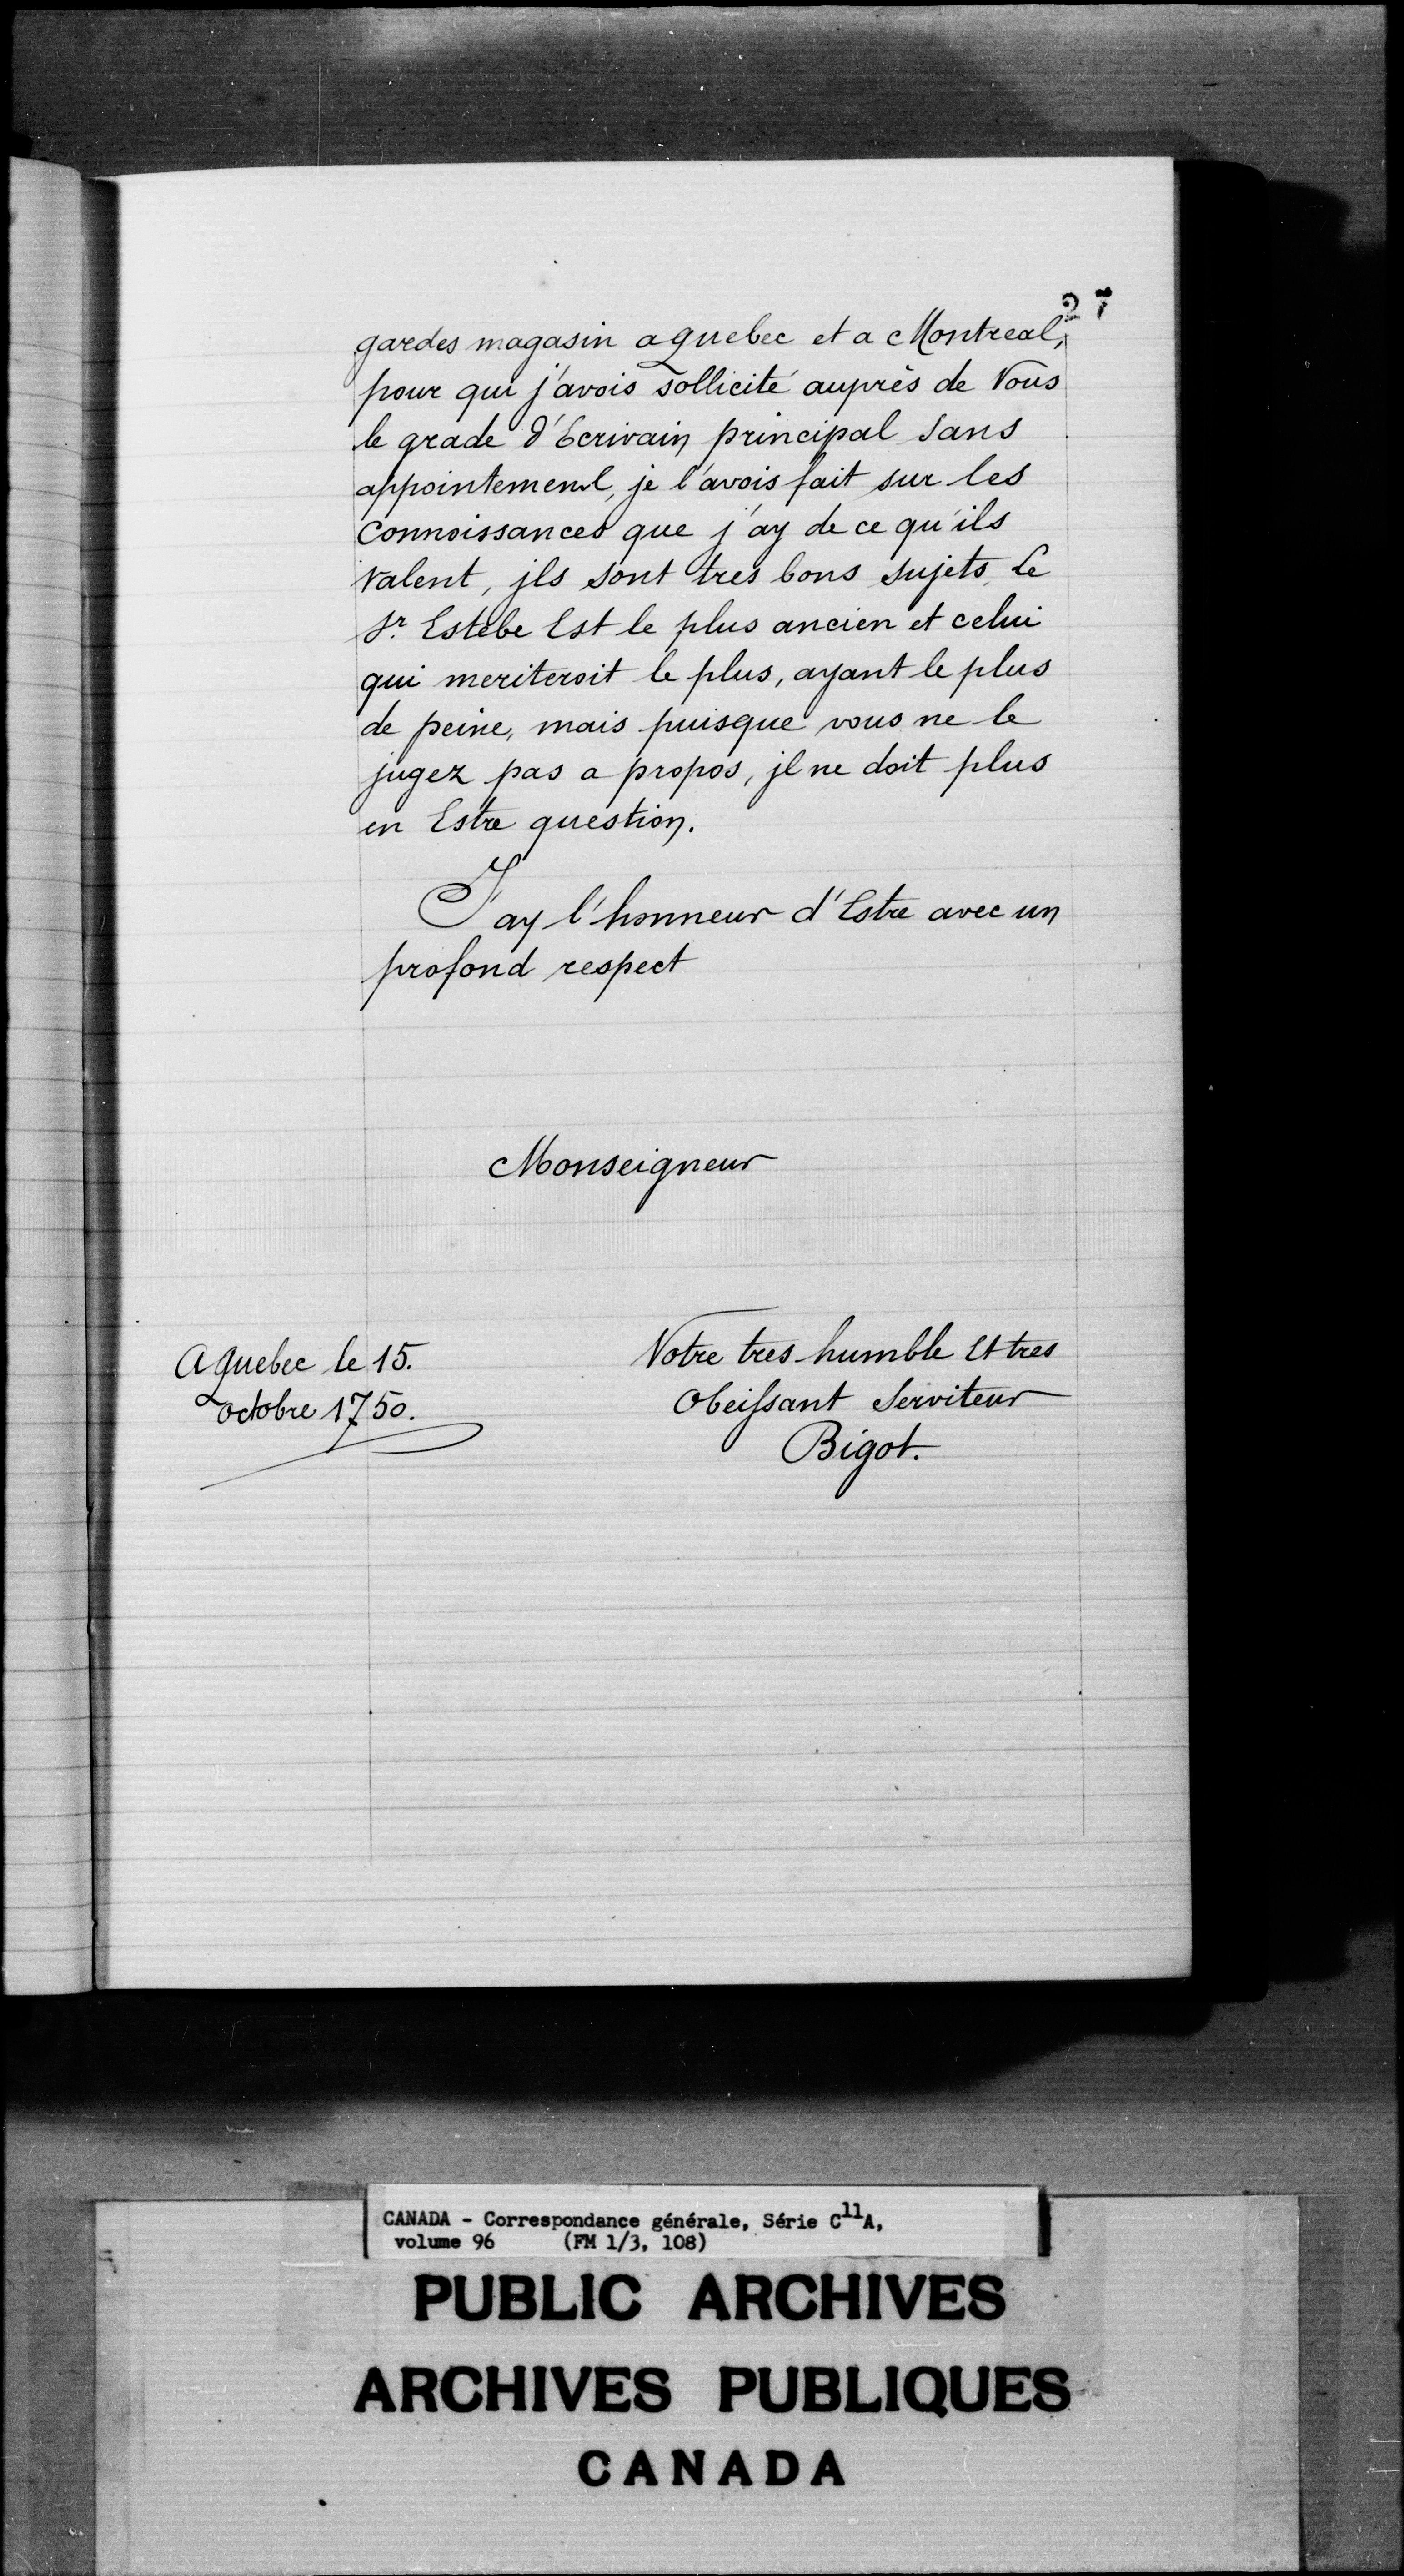 27
gardes magasin a quebec et a Montreal,
pour qui j'avois sollicité auprès de Vous
le grade d'Ecrivain principal sans
appointement, je l'avois fait sur les
Connoissances que j'ay de ce qu'ils
valent, jls sont tres bons sujets, Le
Sr. Estebe Est le plus ancien et celui
qui meriteroit le plus, ayant le plus
de peine, mais puisque vous ne le
jugez pas a propos, jl ne doit plus
en Estre question.
J'ay l'honneur d'Estre avec un
profond respect
Monseigneur
A quebec le 15.
octobre 1750.
Votre tres humble Et tres
Obeissant Serviteur
Bigot.
CANADA - Correspondance générale, Série C11A,
volume 96 (FM 1/3, 108)
PUBLIC ARCHIVES
ARCHIVES PUBLIQUES
CANADA